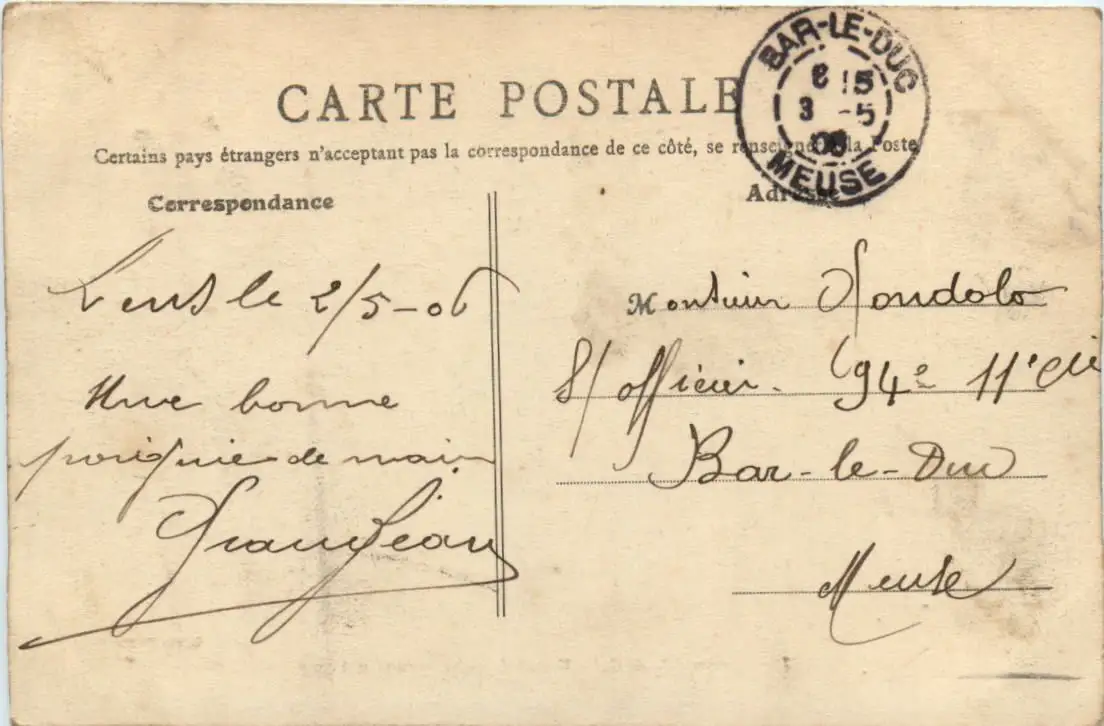 CARTE POSTALE
Certains pays étrangers n'acceptant pas la correspondance de ce côté, se renseigner à la Poste
BAR-LE-DUC
8 15
3 -5
06
MEUSE
Correspondance
Lens le 2/5-06
Une bonne
poignée de main
Grandjean
Adresse
Monsieur
S/officier 94e 11e Cie
Bar-le-Duc
Meuse